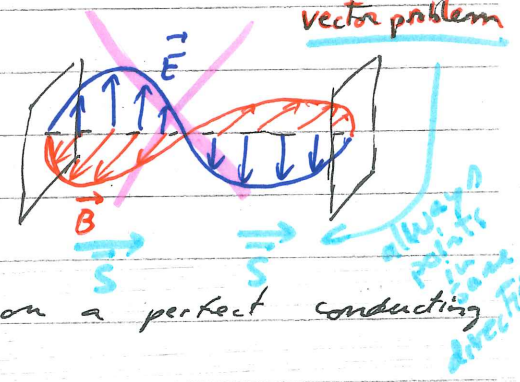 vector problem
E
B
S
S
allways
points
in
same
on a perfect conducting